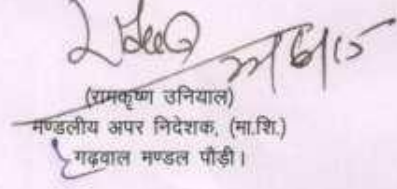 (रामकृष्ण उनियाल)
मण्डलीय अपर निदेशक, (मा.शि.)
गढ़वाल मण्डल पौड़ी।